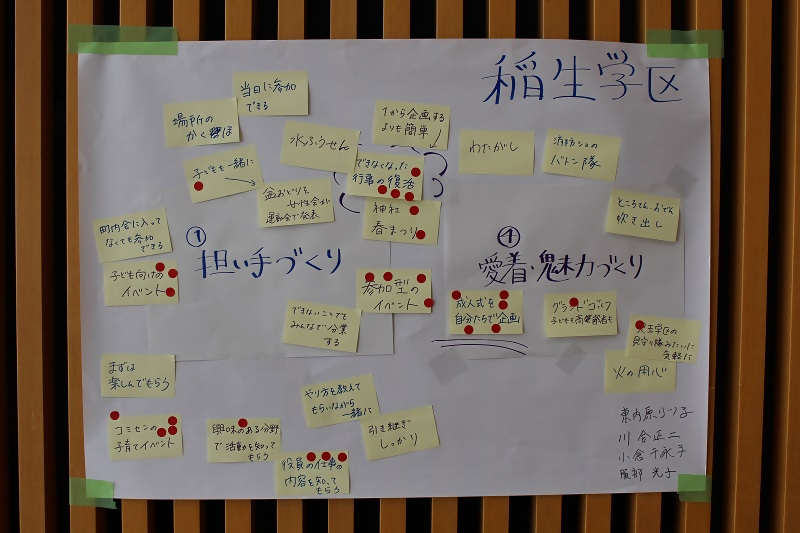 稲生学区
当日に参加
できる
場所の
かくほ
1から企画する
よりも簡単
水ふうせん
わたがし
消防ショの
バトン隊
子どもも一緒に
できなくなった
行事の復活
盆おどりを
女性会が
運動会で発表
神社
春まつり
ところてん、おでん
吹き出し
町内会に入って
なくても参加
できる
①
担い手づくり
④
愛着・魅力づくり
子ども向けの
イベント
参加型の
イベント
成人式を
自分たちで企画
グランドゴルフ
子どもも高齢者も
できないことでも
みんなで分業
する
学区の
見守り隊みたいに
気軽に
火の用心
まずは
楽しんでもらう
やり方を教えて
もらいながら
一緒に
引き継ぎ
しっかり
コミセンの
子育てイベント
興味のある分野
で活動を知って
もらう
役員の仕事の
内容を知って
もらう
川合正二
小倉千永子
服部 光子